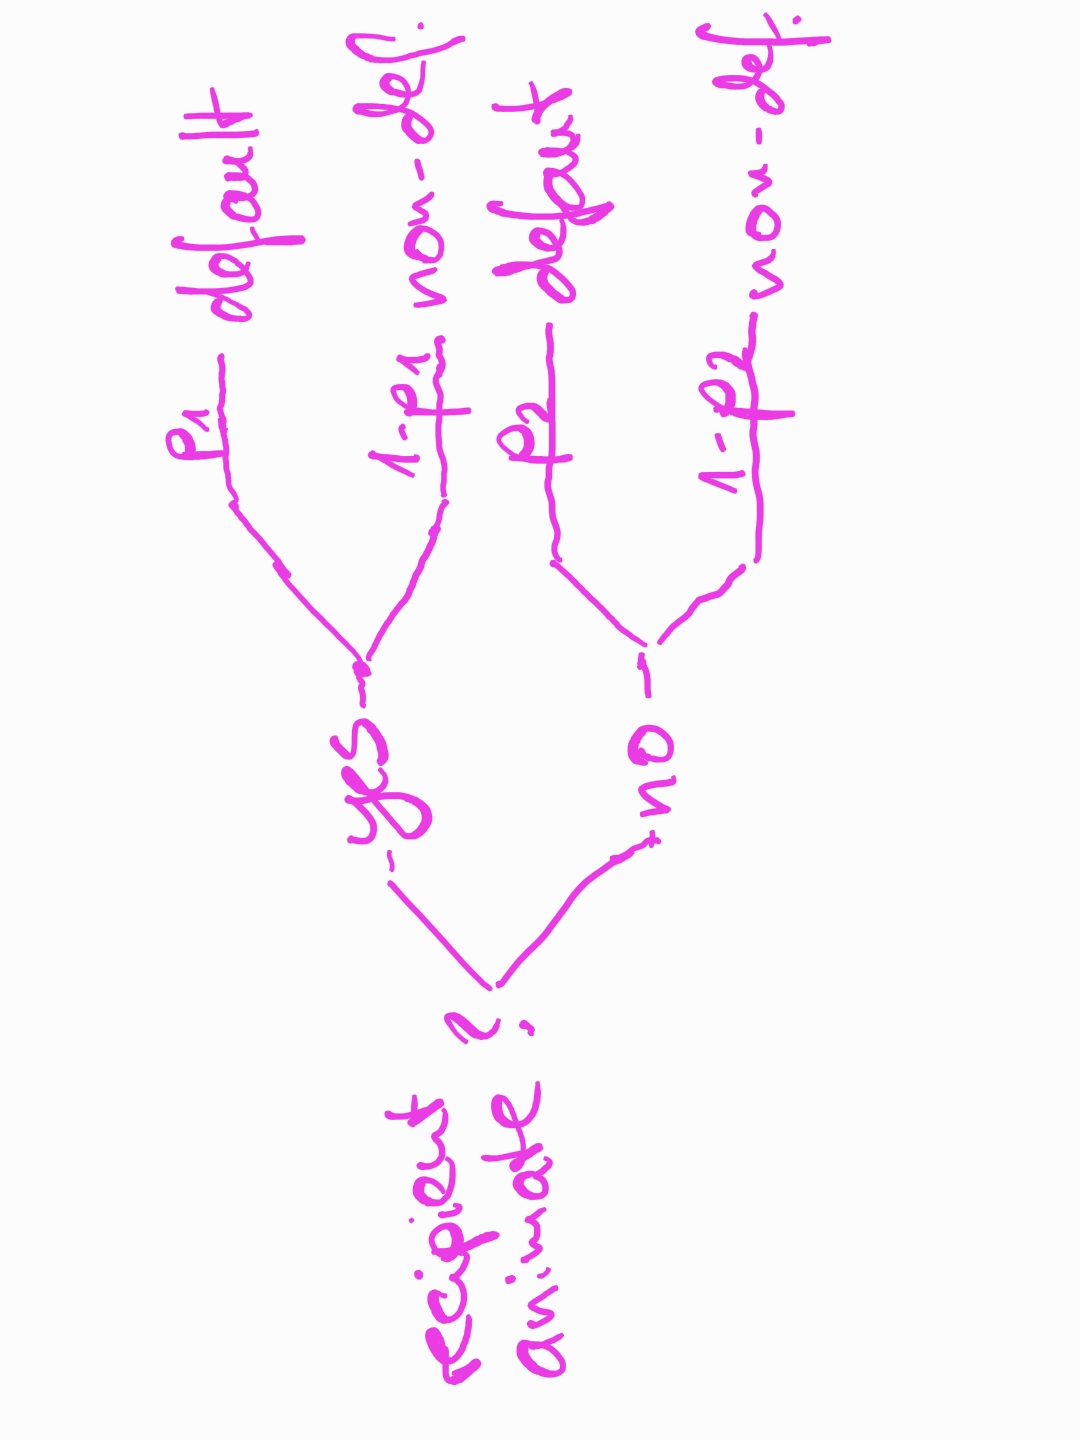 recipient
animate ?
yes
no
p1 default
1-p1 non-def.
p2 default
1-p2 non-def.